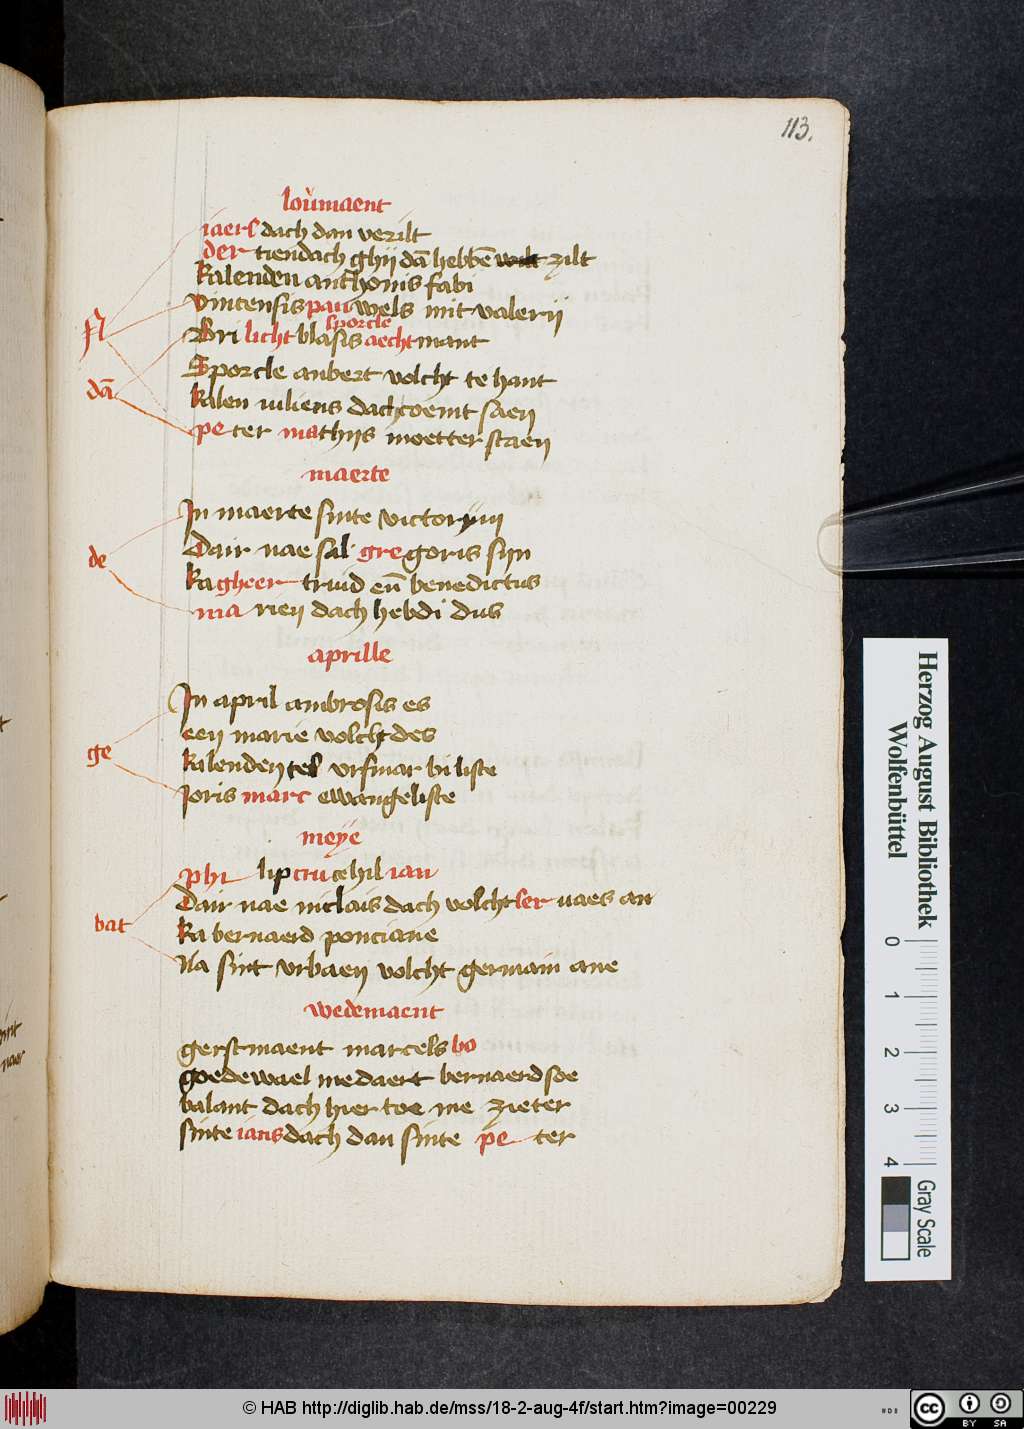 113.
loumaent
iaers dach dan verzilt
der tiendach ghij dā hebbē zilt
kalenden anthonis fabi
vincensis pauwels mit valerij
Sporcle
Bri licht blasis aecht mant
Sporcle aubert volcht te hant
kalen iuliens dach coemt saen
pe ter mathijs moetter staen
dā
maerte
In maerte sinte
Dair nae sal gregoris sijn
de
ka gheer truid eñ benedictus
ma rien dach hebdi dus
aprille
In april ambrosis es
een marie volcht des
ge
kalenden tel ursmar bi liste
Joris marc ewangeliste
meye
phi lip cru cehil ian
Dair nae niclais dach volcht ser uaes an
bat
ka bernaerd ponciane
Na sint vrbaen volcht germain ane
wedemaent
gerstmaent marcels bo
goede wael medaert bernaerd soe
balant dach hier toe me zieter
sinte ians dach dan sinte pe ter
Herzog August Bibliothek
Wolfenbüttel
0 1 2 3 4
Gray Scale
© HAB http://diglib.hab.de/mss/18-2-aug-4f/start.htm?image=00229
cc
BY SA